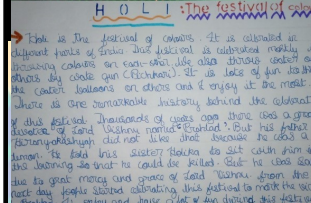 HOLI :The festival of colo
Holi is the festival of colours. It is celebrated in
different parts of India. This festival is celebrated mainly
throwing colours on each-other. We also throw water
others by water gun (Pichkari). It is lots of fun to th
the water balloons on others and I enjoy it the most.
There is one remarkable history behind the celebrat
of this festival. Thousands of years ago there was a gre
devotee of Lord Vishnu named "Prahlad". But his father
did not like that because he was a
demon. He told his sister Holika to sit with him
the burning so that he could be killed. But he was sa
due to great mercy and grace of Lord Vishnu. From the
next day people started celebrating this festival to mark the vic
enjoy and have a lot of fun during this festiva